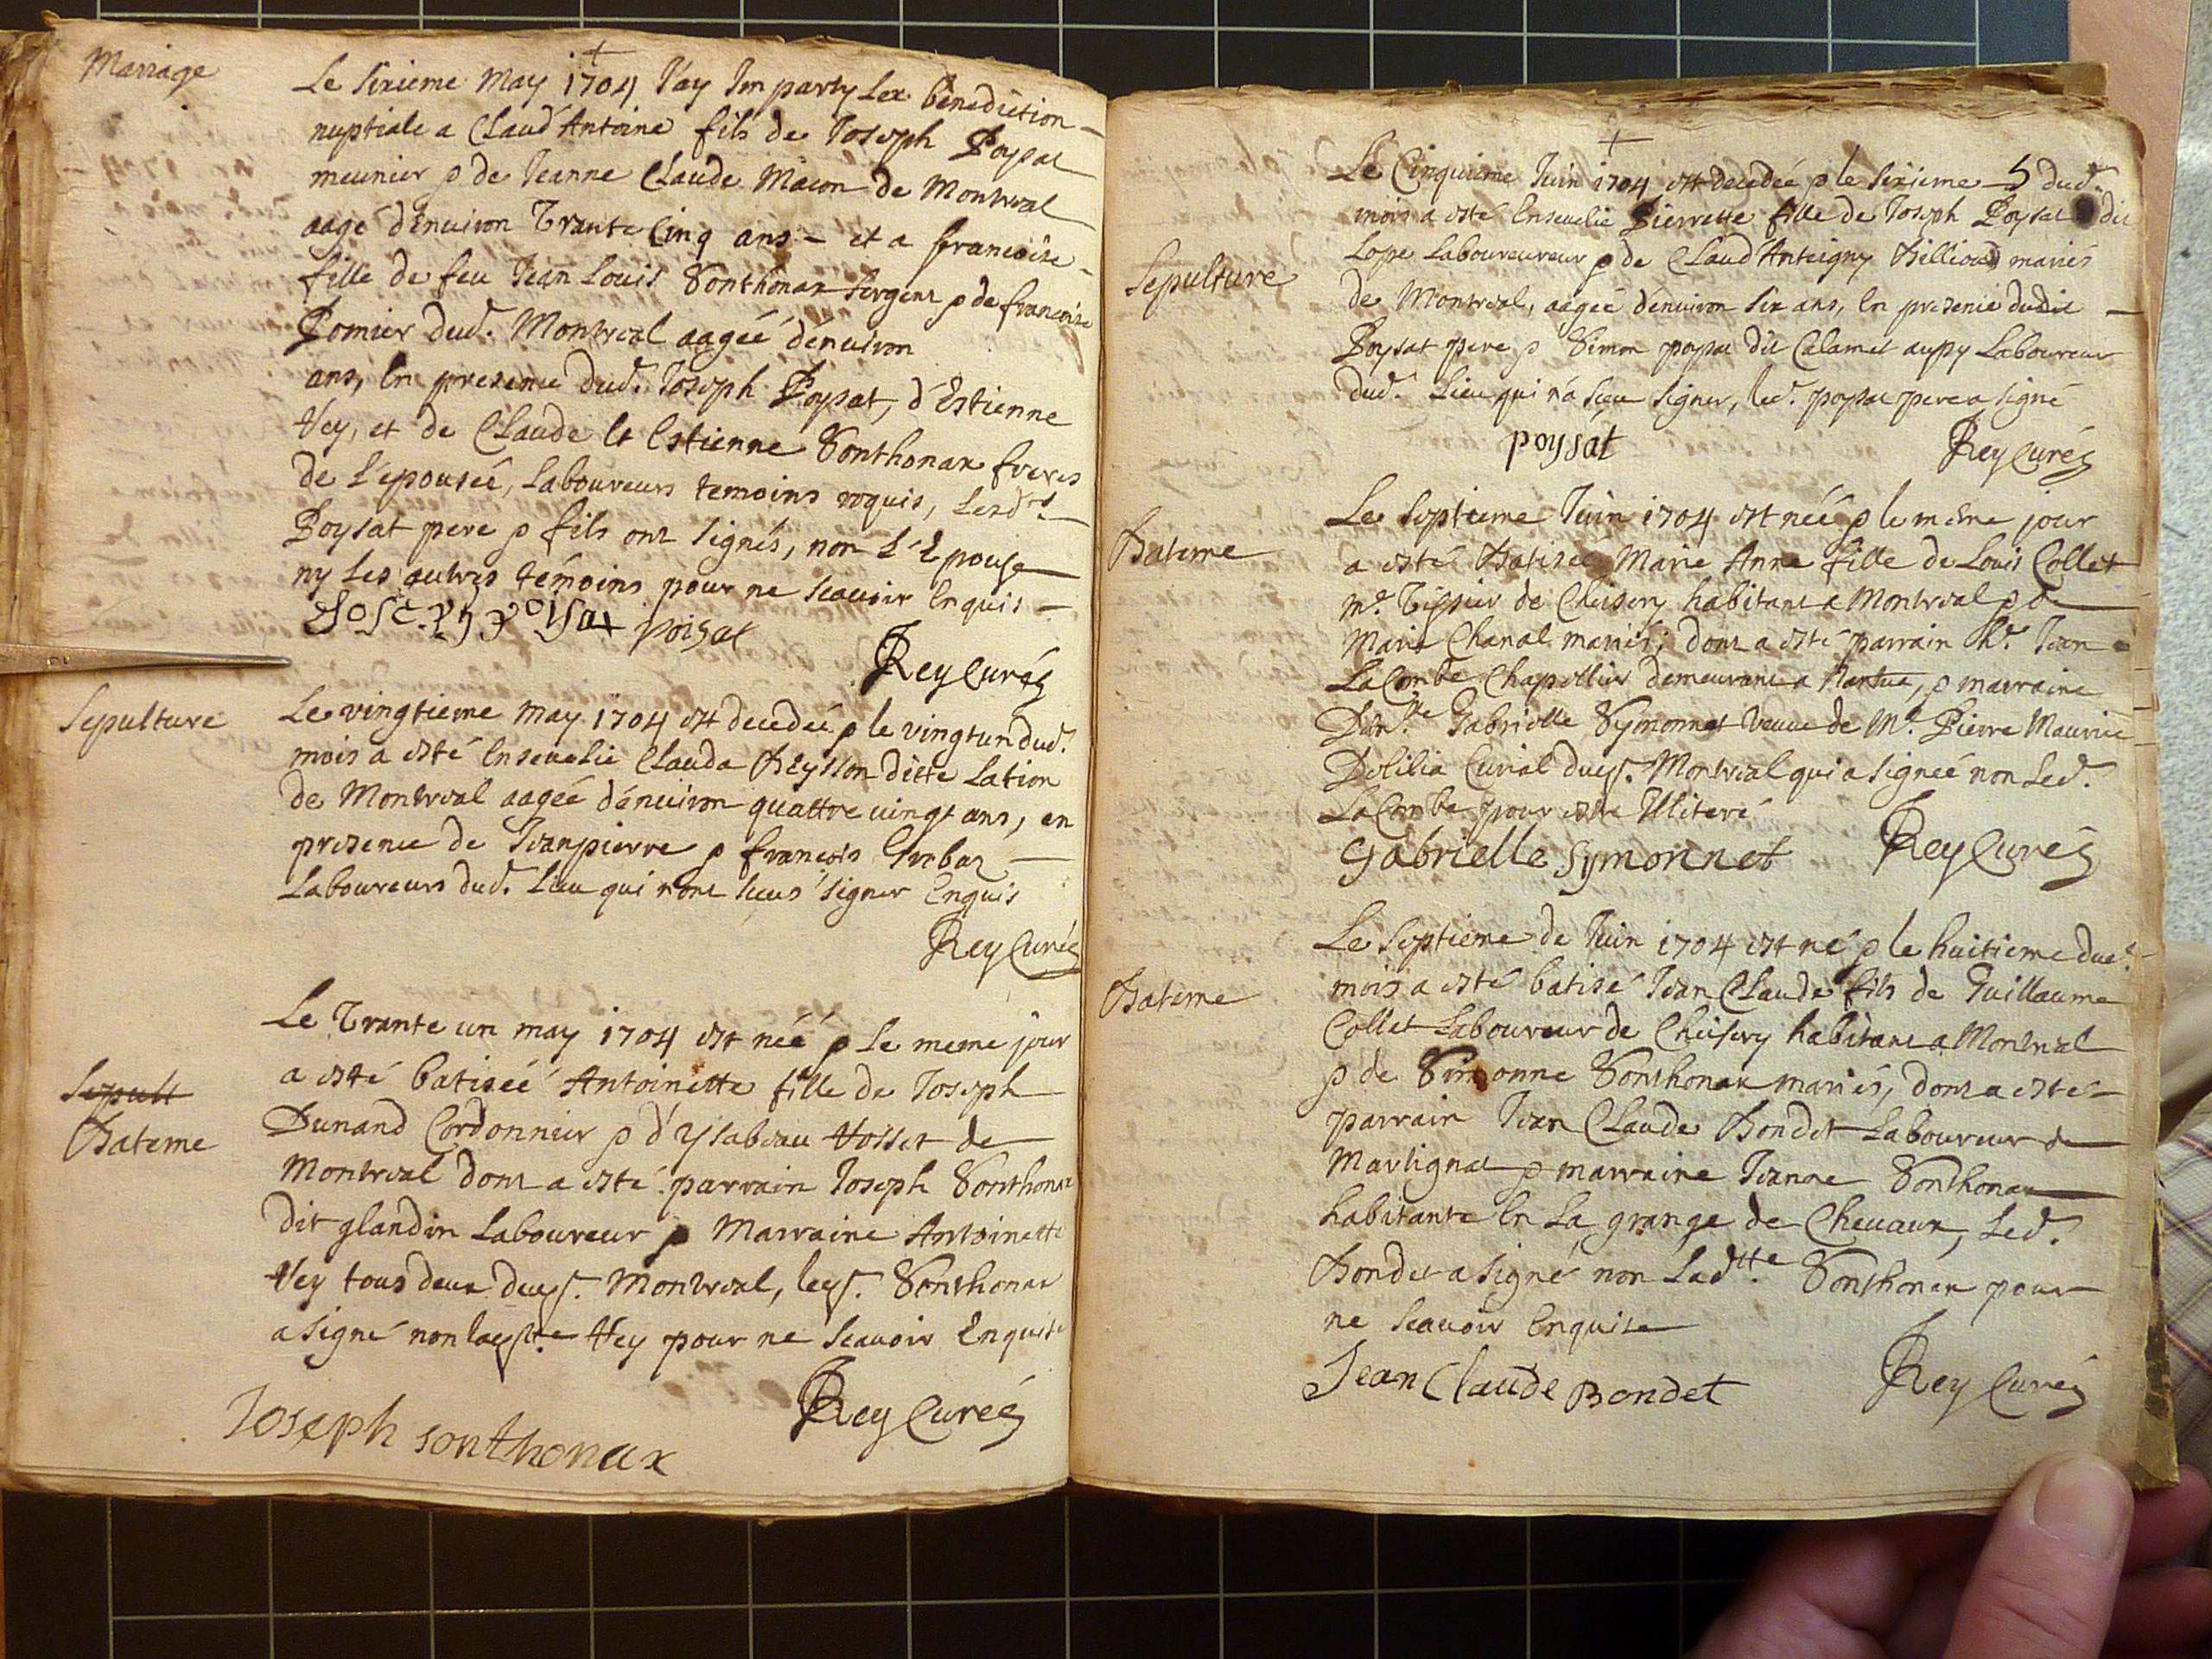 +
Mariage
Le sixieme May 1704 J'ay Imparty La benediction
nuptiale a Claud Antoine fils de Joseph Poysat
meunier & de Jeanne Claude Macon de Montreal
aagé d'enuiron Trante Cinq ans - et a francoise
fille de feu Jean Louis Sonthonax sergent & de francoise
Pomier dud. Montreal aageé d'enuiron
ans, En presence dud. Joseph Poysat, d'Estienne
Vey, et de Claude et Estienne Sonthonax freres
de L'epouseé, Laboureurs temoins requis, Lesd.ts
Poysat pere & fils ont signés, non L'Epouse
ny Les autres témoins pour ne scauoir Enquis
poisat
Rey Curé
Sepulture
Le vingtieme may 1704 est decedeé & le vingtun dud.
mois a esté Enseuelie Clauda ditte Lation
de Montreal aageé d'enuiron quattre uingt ans, en
presence de Jeanpierre & francois
Laboureurs dud. Lieu qui n'ont sceus signer Enquis
Rey Curé
Le Trante un may 1704 est néé & Le meme jour
Sepult
a esté batiseé Antoinette fille de Joseph
Bateme
Dunand Cordonnier & d'Ysabeau Vosset de
Montreal dont a esté parrain Joseph Sonthonax
dit glandin Laboureur & Marraine Antoinette
Vey tous deux dud. Montreal, led. Sonthonax
a signé non ladtte. Vey pour ne scauoir Enquise
Rey Curé
Joseph sonthonax
+
Le Cinquieme Juin 1704 est decedeé & le sixieme dud.
mois a esté Enseuelie Pierrette fille de Joseph Poysat dit
Sepulture
Lope Laboureureur & de Claud Anteigny Billioud mariés
de Montreal, aageé d'enuiron six ans, En presence dudit
Poysat pere & Simon poysat dit Calamet aussy Laboureur
dud. Lieu qui n'a sceu signer, led. poysat pere a signé
poysat
Rey Curé
Le septieme Juin 1704 est néé & le mesme jour
Bateme
a esté Batiseé Marie Anne fille de Louis Collet
m.e Tissier de Cheisery habitant a Montreal & de
Marie Chanal mariés; dont a esté parrain h.e Jean
LaCombe Chapellier demeurant a Nantua, & marraine
Dam.lle Gabrielle Symonnet Veuue de M.e Pierre Maurice
Delilia Curial dud. Montreal qui a signeé non Led.
LaCombe pour estre Illiteré
Gabrielle symonnet
Rey Curé
Le septieme de Juin 1704 est né & le huitieme dud.
Bateme
mois a esté batisé Jean Claude fils de Guillaume
Collet Laboureur de Cheisery habitant a Montreal
& de Simonne Sonthonax mariés, dont a esté
parrain Jean Claude Bondet Laboureur de
Martignat & marraine Jeanne Sonthonax
habitante En La grange de Cheuaux, Led.
Bondet a signé non Ladtte. Sonthonax pour
ne scauoir Enquise
Jean Claude Bondet
Rey Curé